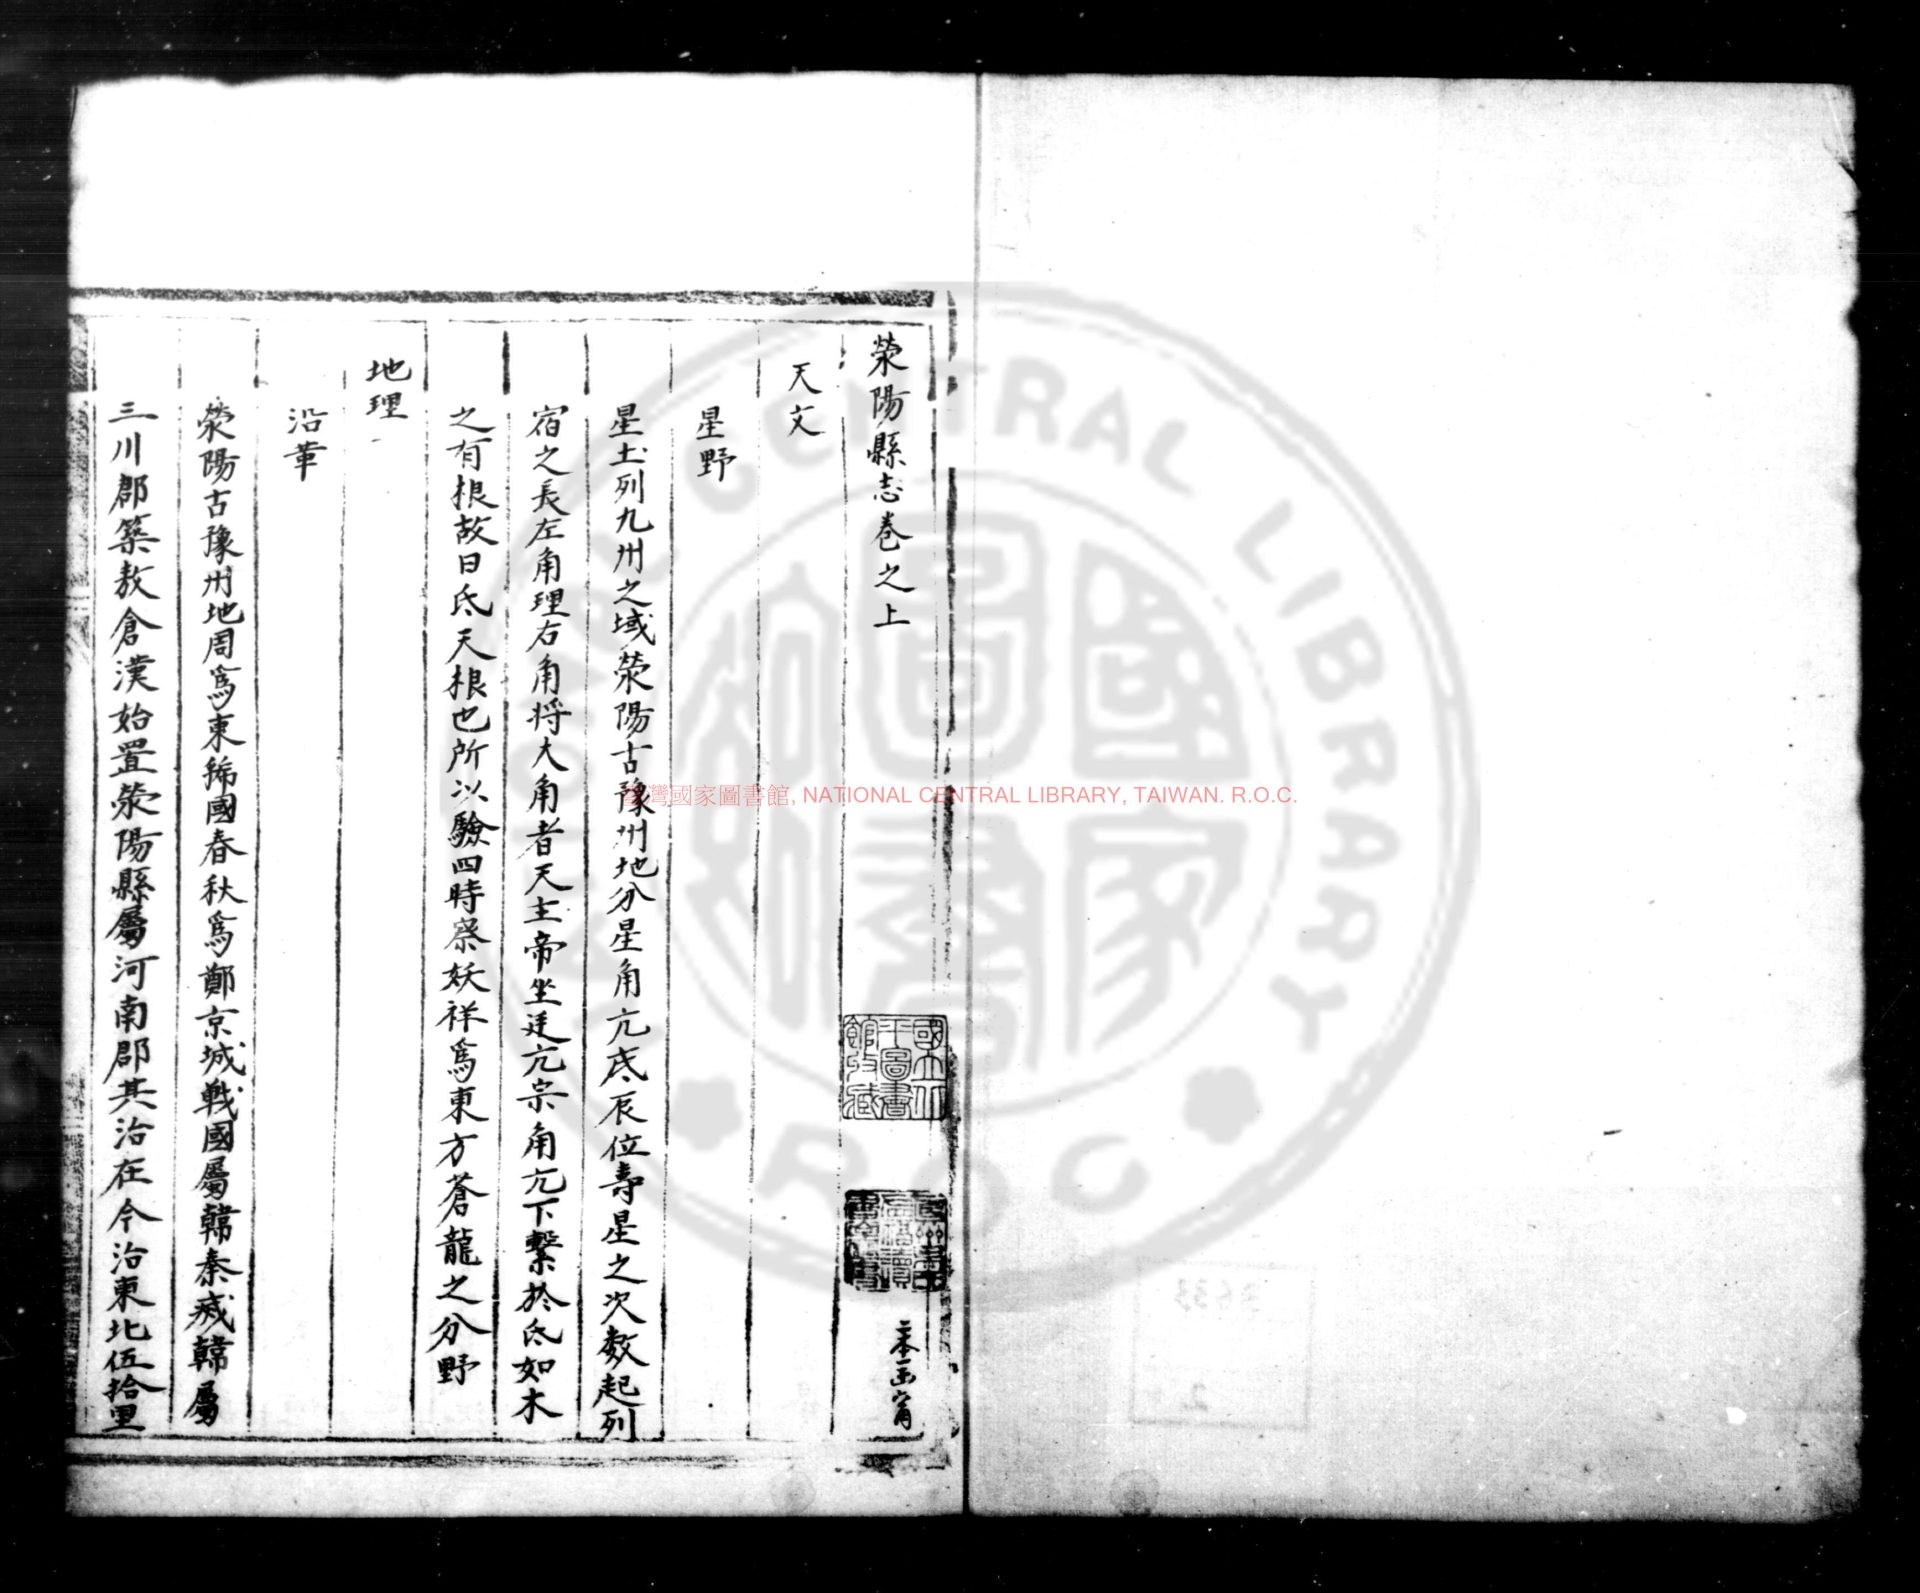 滎陽縣志卷之上
天文
星野
星土列九州之域滎陽古豫州地分星角亢底辰位壽星之次數起列
宿之長左角理右角將大角者天主帝坐廷亢宗角亢下繫於氐如木
之有根故曰氐天根也所以驗四時察妖祥爲東方蒼龍之分野
地理
沿革
滎陽古豫州地周爲東虢國春秋爲鄭京城戰國屬韓秦滅韓屬
三川郡築敖倉漢始置滎陽縣屬河南郡其治在今治東北伍拾里
國立北平圖書館收藏
臺灣國家圖書館, NATIONAL CENTRAL LIBRARY, TAIWAN. R.O.C.
CENTRAL LIBRARY
R.O.C
國家圖書館